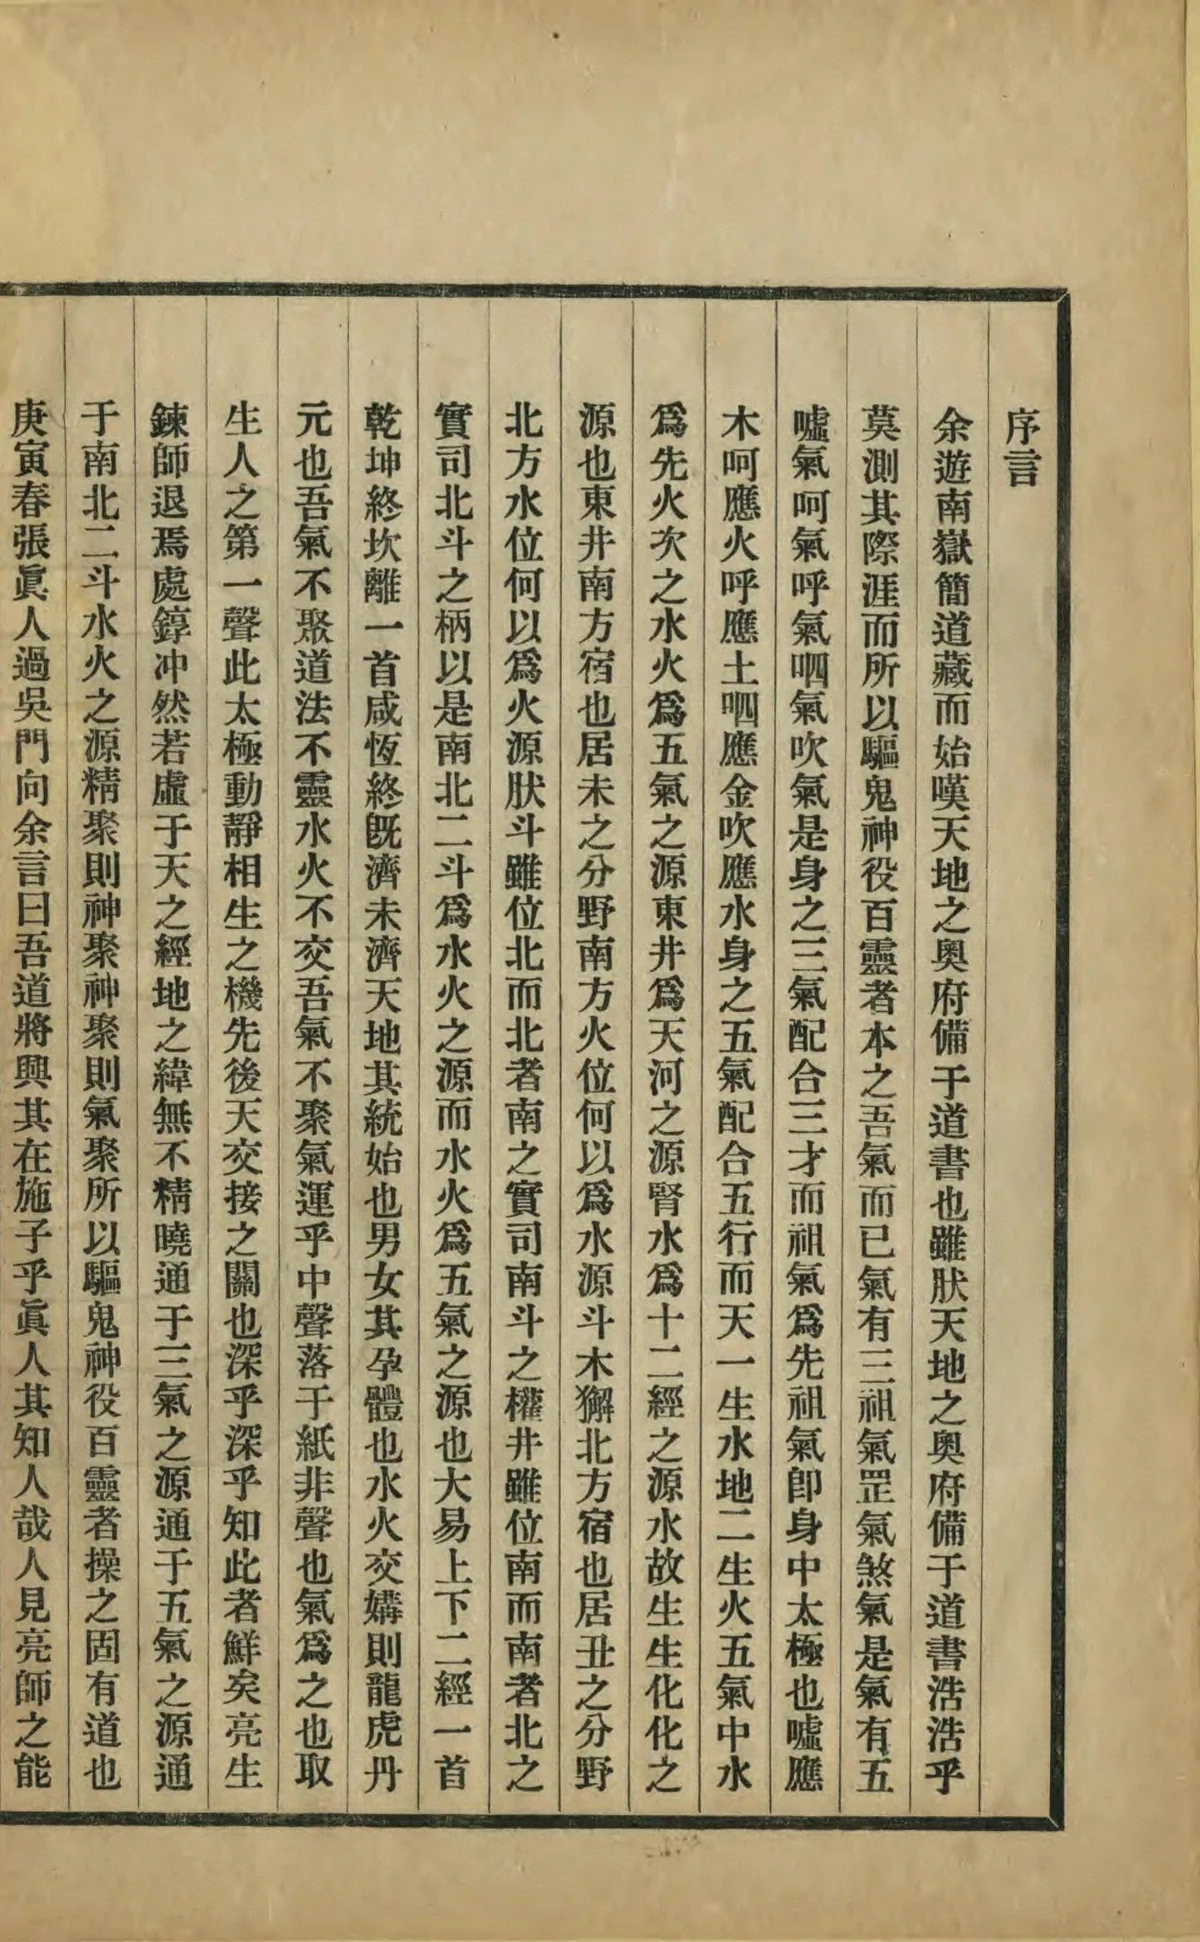 序言
余遊南嶽簡道藏而始嘆天地之奥府備于道書也雖肰天地之奥府備于道書浩浩乎
莫測其際涯而所以驅鬼神役百靈者本之吾氣而已氣有三祖氣罡氣煞氣是氣有五
噓氣呵氣呼氣呬氣吹氣是身之三氣配合三才而祖氣爲先祖氣卽身中太極也噓應
木呵應火呼應土呬應金吹應水身之五氣配合五行而天一生水地二生火五氣中水
爲先火次之水火爲五氣之源東井爲天河之源腎水爲十二經之源水故生生化化之
源也東井南方宿也居未之分野南方火位何以爲水源斗木獬北方宿也居丑之分野
北方水位何以爲火源肰斗雖位北而北者南之實司南斗之權井雖位南而南者北之
實司北斗之柄以是南北二斗爲水火之源而水火爲五氣之源也大易上下二經一首
乾坤終坎離一首咸恆終旣濟未濟天地其統始也男女其孕體也水火交媾則龍虎丹
元也吾氣不聚道法不靈水火不交吾氣不聚氣運乎中聲落于紙非聲也氣爲之也取
生人之第一聲此太極動靜相生之機先後天交接之關也深乎深乎知此者鮮矣亮生
鍊師退焉處錞冲然若虛于天之經地之緯無不精曉通于三氣之源通于五氣之源通
于南北二斗水火之源精聚則神聚神聚則氣聚所以驅鬼神役百靈者操之固有道也
庚寅春張眞人過吳門向余言曰吾道將興其在施子乎眞人其知人哉人見亮師之能